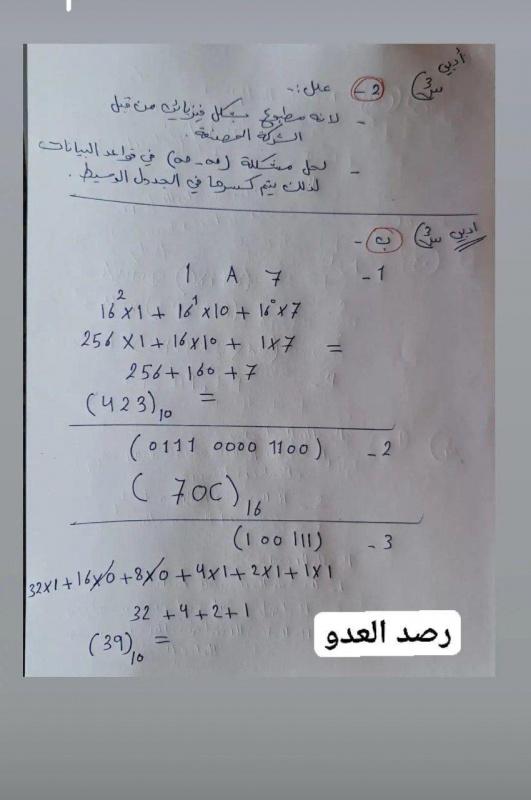 أدبي س3 2- علل:-
- لانه مطبوع بشكل فيزيائي من قبل
الشركة المصنعة.
- لحل مشكلة (∞-∞) في قواعد البيانات
لذلك يتم كسرها في الجدول الوسيط.
أدبي س3 ب-
1- 1 A 7
16²×1 + 16¹×10 + 16⁰×7
256×1 + 16×10 + 1×7 =
256+160+7
(423)₁₀ =
2- (0111 0000 1100)
(70C)₁₆
3- (100 111)
32×1+16×0+8×0+4×1+2×1+1×1
32+4+2+1
(39)₁₀ =
رصد العدو